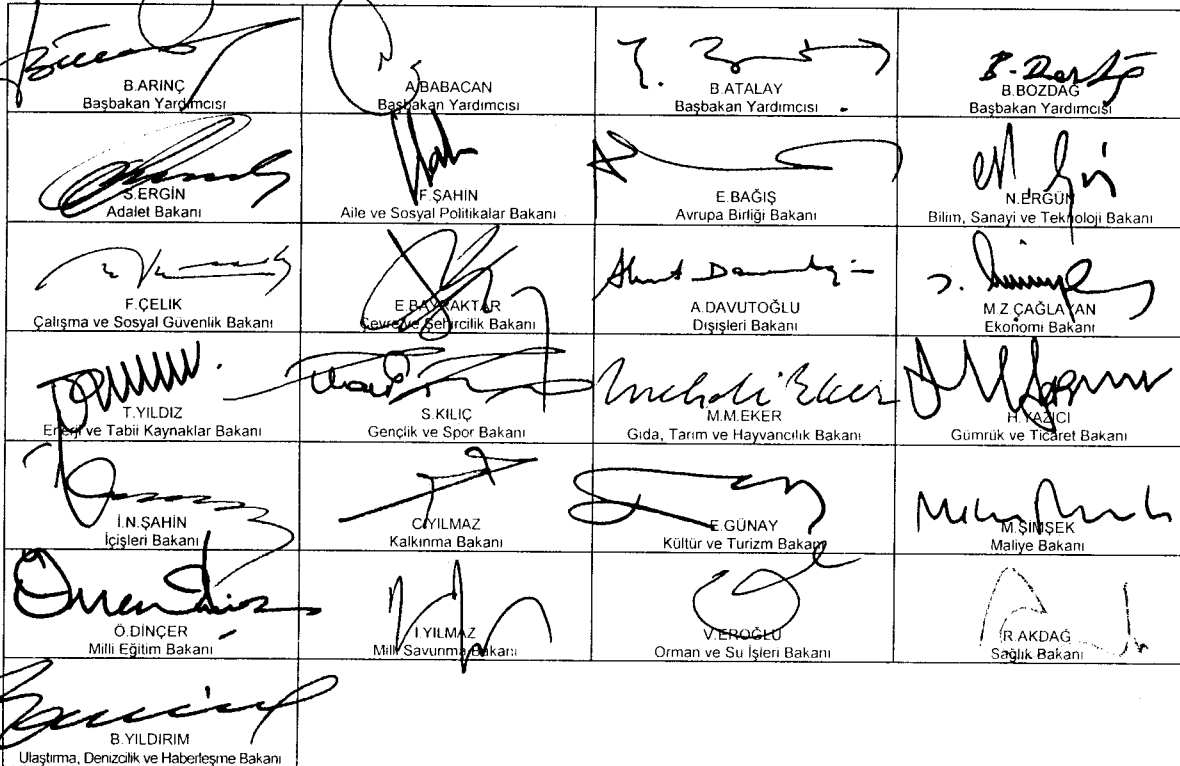 B.ARINÇ
Başbakan Yardımcısı
A.BABACAN
Başbakan Yardımcısı
B.ATALAY
Başbakan Yardımcısı
B.BOZDAĞ
Başbakan Yardımcısı
S.ERGİN
Adalet Bakanı
F.ŞAHİN
Aile ve Sosyal Politikalar Bakanı
E.BAĞIŞ
Avrupa Birliği Bakanı
N.ERGÜN
Bilim, Sanayi ve Teknoloji Bakanı
F.ÇELİK
Çalışma ve Sosyal Güvenlik Bakanı
E.BAYRAKTAR
Çevre ve Şehircilik Bakanı
A.DAVUTOĞLU
Dışişleri Bakanı
M.Z.ÇAĞLAYAN
Ekonomi Bakanı
T.YILDIZ
Enerji ve Tabii Kaynaklar Bakanı
S.KILIÇ
Gençlik ve Spor Bakanı
Mehdi Eker
M.M.EKER
Gıda, Tarım ve Hayvancılık Bakanı
H.YAZICI
Gümrük ve Ticaret Bakanı
İ.N.ŞAHİN
İçişleri Bakanı
C.YILMAZ
Kalkınma Bakanı
E.GÜNAY
Kültür ve Turizm Bakanı
M.ŞİMŞEK
Maliye Bakanı
Ö.DİNÇER
Milli Eğitim Bakanı
İ.YILMAZ
Milli Savunma Bakanı
V.EROĞLU
Orman ve Su İşleri Bakanı
R.AKDAĞ
Sağlık Bakanı
B.YILDIRIM
Ulaştırma, Denizcilik ve Haberleşme Bakanı